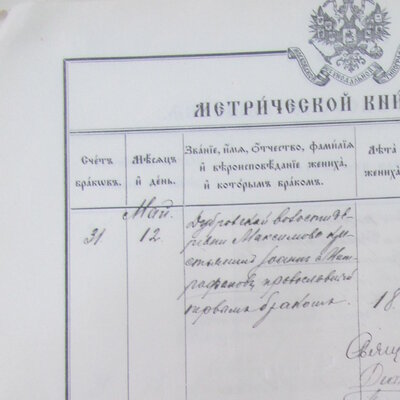 МЕТРИ́ЧЕСКОЙ КНИ
Счетъ
браковъ.
Мѣсяцъ
и день.
Званіе, имя, отчество, фамилія
и вѣроисповѣданіе жениха,
и которымъ бракомъ.
Лѣта
жениха
Май.
31
12.
Дубровской волости де
ревни Максимово кре
стьянинъ Іоаннъ
православный
первымъ бракомъ.
18
Свящ